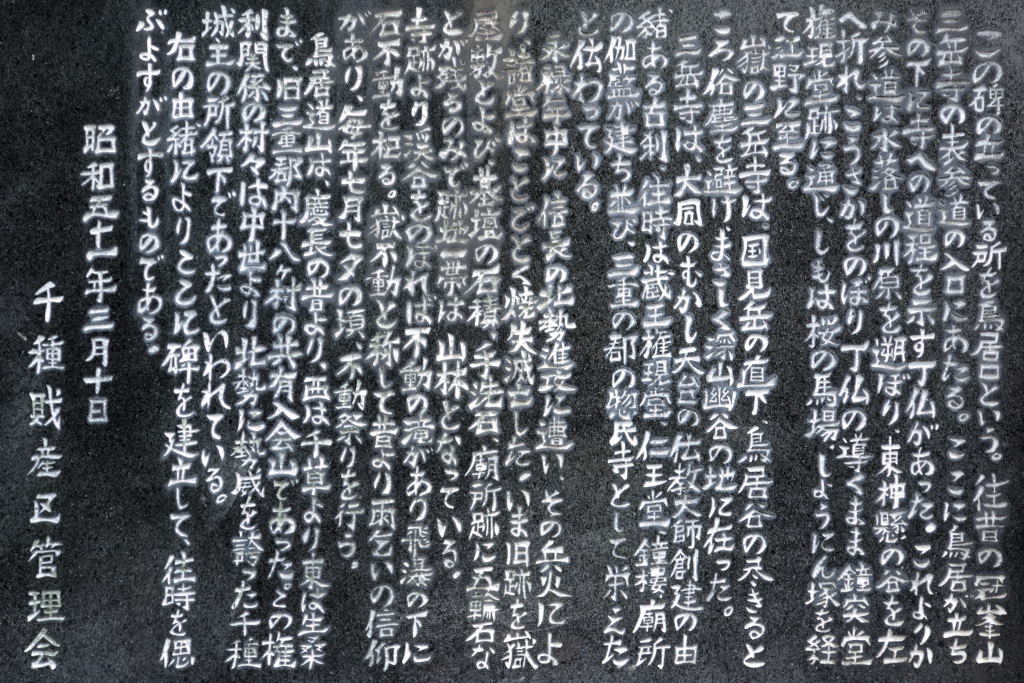 この碑の在っている所を鳥居口という。往昔の冠峯山
三岳寺の表参道の入口にあたる。ここに鳥居が立ち
その下に寺への道程を示す丁仏があった。これよりか
み参道は水落しの川原を遡ぼり東神懸の谷を左
へ折れこうさかをのぼり丁仏の導くまま鐘突堂
権現堂跡に通じ、しもは桜の馬場、しようにん塚を経
て江野に至る。
嶽の三岳寺は国見岳の直下、鳥居谷の尽きると
ころ俗塵を避け、まさしく深山幽谷の地に在った。
三岳寺は、大同のむかし天台の伝教大師創建の由
緒ある古刹、往時は蔵王権現堂、仁王堂、鐘楼、廟所
の伽藍が建ち並び、三重の郡の惣民寺として栄えた
と伝わっている。
永禄年中に信長の北勢進攻に遭い、その兵火によ
り諸堂はことごとく焼失滅亡した。いま旧跡を嶽
屋敷とよび、基壇の石積、手洗石、廟所跡に五輪石な
とが残るのみで跡地一帯は山林となっている。
寺跡より渓谷をのぼれば不動の滝があり飛瀑の下に
石不動を祀る。嶽不動と称して昔より雨乞いの信仰
があり、毎年七月七夕の頃、不動祭りを行う。
鳥居道山は、慶長の昔より、西は千草より東は生桑
まで、旧三重郡内十八ヶ村の共有入会山であったとの権
利関係の村々は中世より北勢に勢威を誇った千種
城主の所領下であったといわれている。
右の由緒によりここに碑を建立して、往時を偲
ぶよすがとするものである。
昭和五十一年三月十日
千種財産区管理会